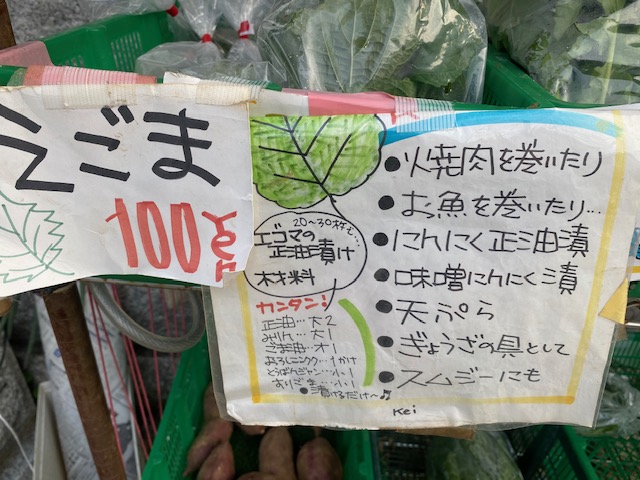 えごま
100
20～30枚を…
エゴマの
正油漬け
材料
カンタン!
正油…大2
みりん…大1
ごま油…小1
おろしニンニク…1かけ
とうばんジャン…小1
すりごま…小1
●漬けるだけ～♪
●焼肉を巻いたり
●お魚を巻いたり…
●にんにく正油漬
●味噌にんにく漬
●天ぷら
●ぎょうざの具として
●スムジーにも
Kei